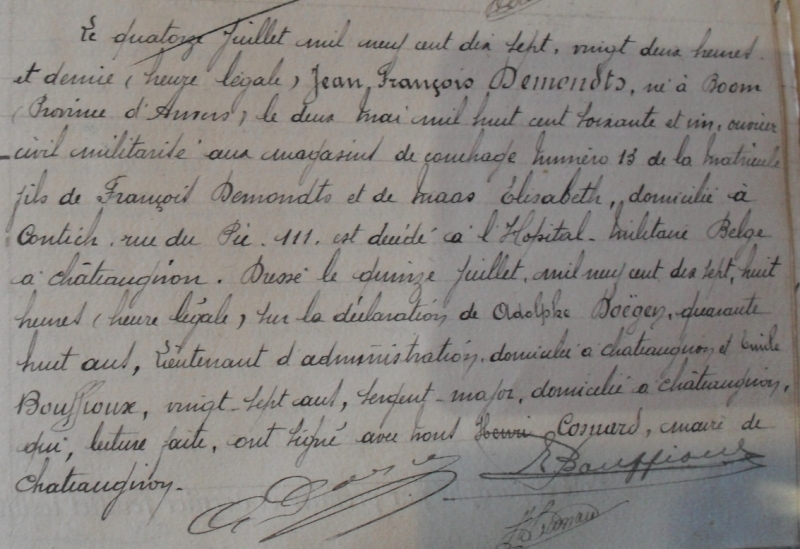 Le quatorze juillet mil neuf cent dix sept, vingt deux heures
et demie (heure légale) Jean François Demondts, né à Boom
(Province d'Anvers) le deux mai mil huit cent soixante et un, ouvrier
civil militarisé aux magasins de couchage numéro 13 de la matricule
fils de François Demondts et de Maas Élisabeth, domicilié à
Contich, rue du Pic. 111. est décédé à l'Hôpital-militaire Belge
à châteaugiron. Dressé le quinze juillet, mil neuf cent dix sept, huit
heures (heure légale) sur la déclaration de Adolphe Doëgen, quarante
huit ans, Lieutenant d'administration, domicilié à chateaugiron et Emile
Bouffioux, vingt-sept ans, sergent-major, domicilié à châteaugiron,
qui, lecture faite, ont signé avec nous Henri Cosnard, maire de
Chateaugiron.
E Bouffioux